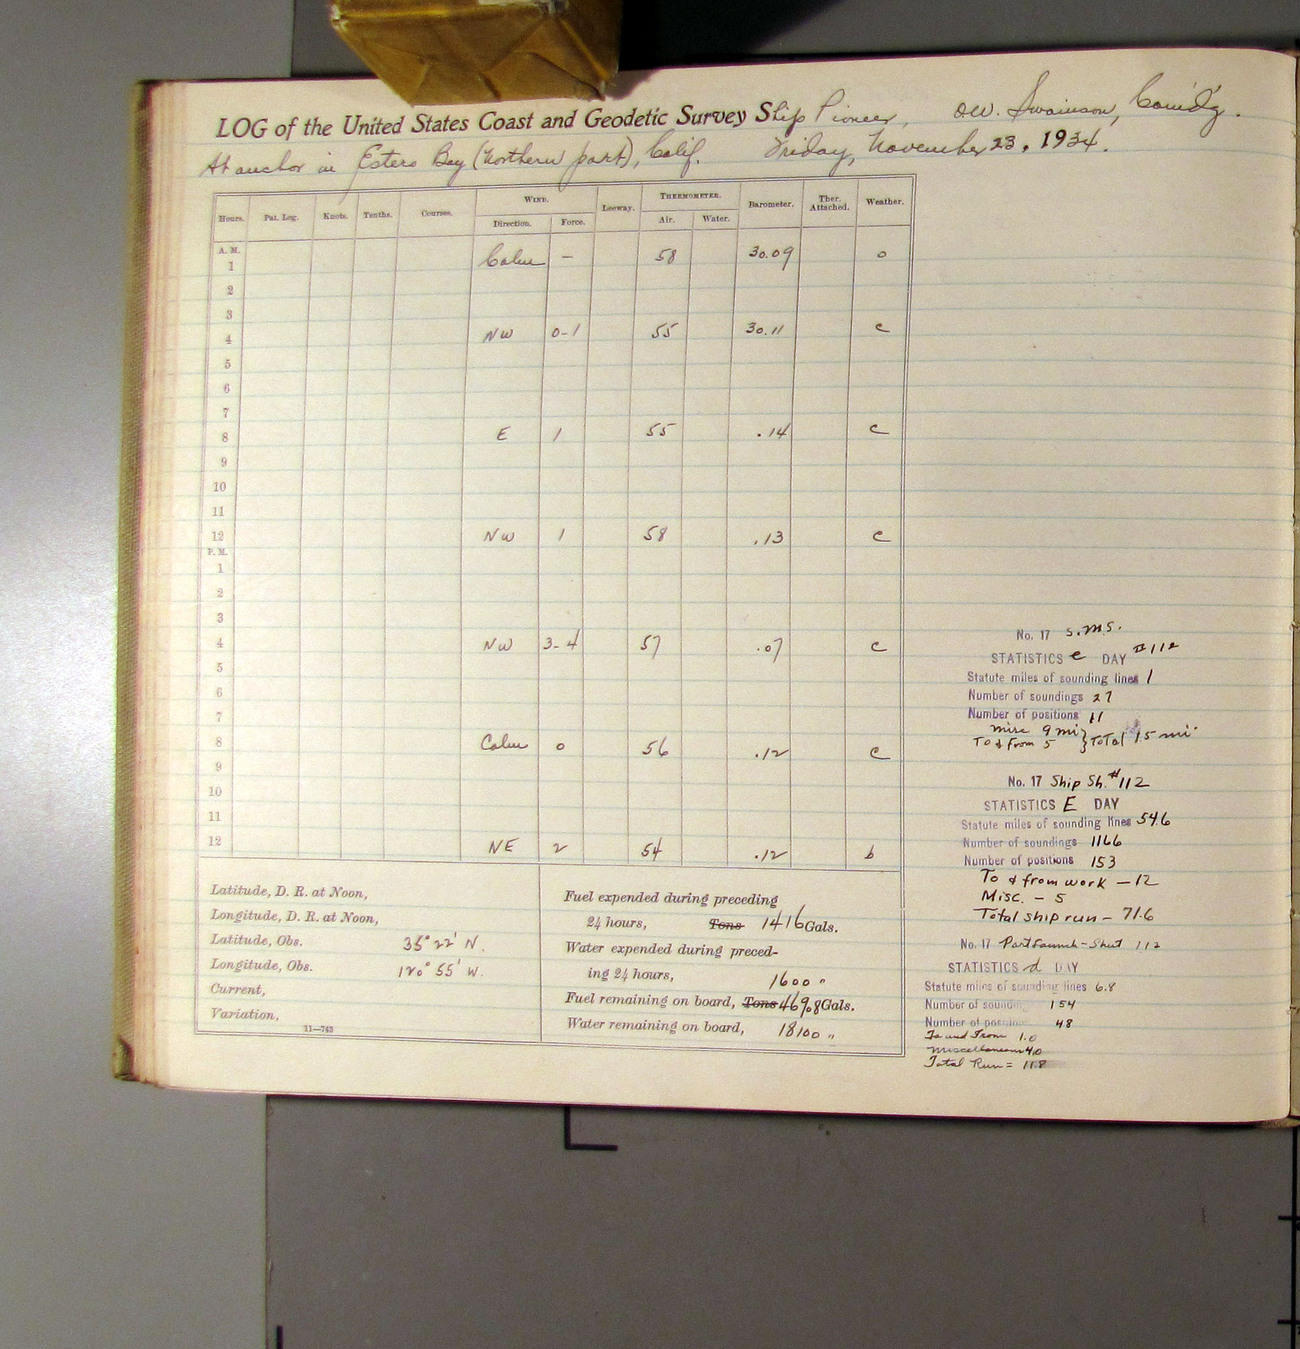 LOG of the United States Coast and Geodetic Survey Ship Pioneer, O.W. Swainson, Comd'g.
At anchor in Estero Bay (Northern part), Calif. Friday, November 23, 1934.
Hours. Pat. Log. Knots. Tenths. Courses. WIND. Leeway. THERMOMETER. Barometer. Ther. Attached. Weather.
Direction. Force. Air. Water.
A. M.
1 Calm – 58 30.09 o
2
3
4 NW 0-1 55 30.11 c
5
6
7
8 E 1 55 .14 c
9
10
11
12 NW 1 58 .13 c
P. M.
1
2
3
4 NW 3-4 57 .07 c
5
6
7
8 Calm 0 56 .12 c
9
10
11
12 NE 2 54 .12 b
Latitude, D. R. at Noon,
Longitude, D. R. at Noon,
Latitude, Obs. 35° 22' N.
Longitude, Obs. 120° 55' W.
Current,
Variation,
11—743
Fuel expended during preceding
24 hours, Tons 1416 Gals.
Water expended during preced-
ing 24 hours, 1600 "
Fuel remaining on board, Tons 46908 Gals.
Water remaining on board, 18100 "
No. 17 S.M.S.
STATISTICS e DAY #112
Statute miles of sounding lines 1
Number of soundings 27
Number of positions 11
misc 9 mi } Total 15 mi.
To & from 5
No. 17 Ship Sh. #112
STATISTICS E DAY
Statute miles of sounding lines 54.6
Number of soundings 1166
Number of positions 153
To & from work – 12
Misc. – 5
Total ship run – 71.6
No. 17 Port Launch – Sheet 112
STATISTICS d DAY
Statute miles of sounding lines 6.8
Number of sounding 154
Number of positions 48
To and From 1.0
Miscellaneous 4.0
Total Run = 11.8